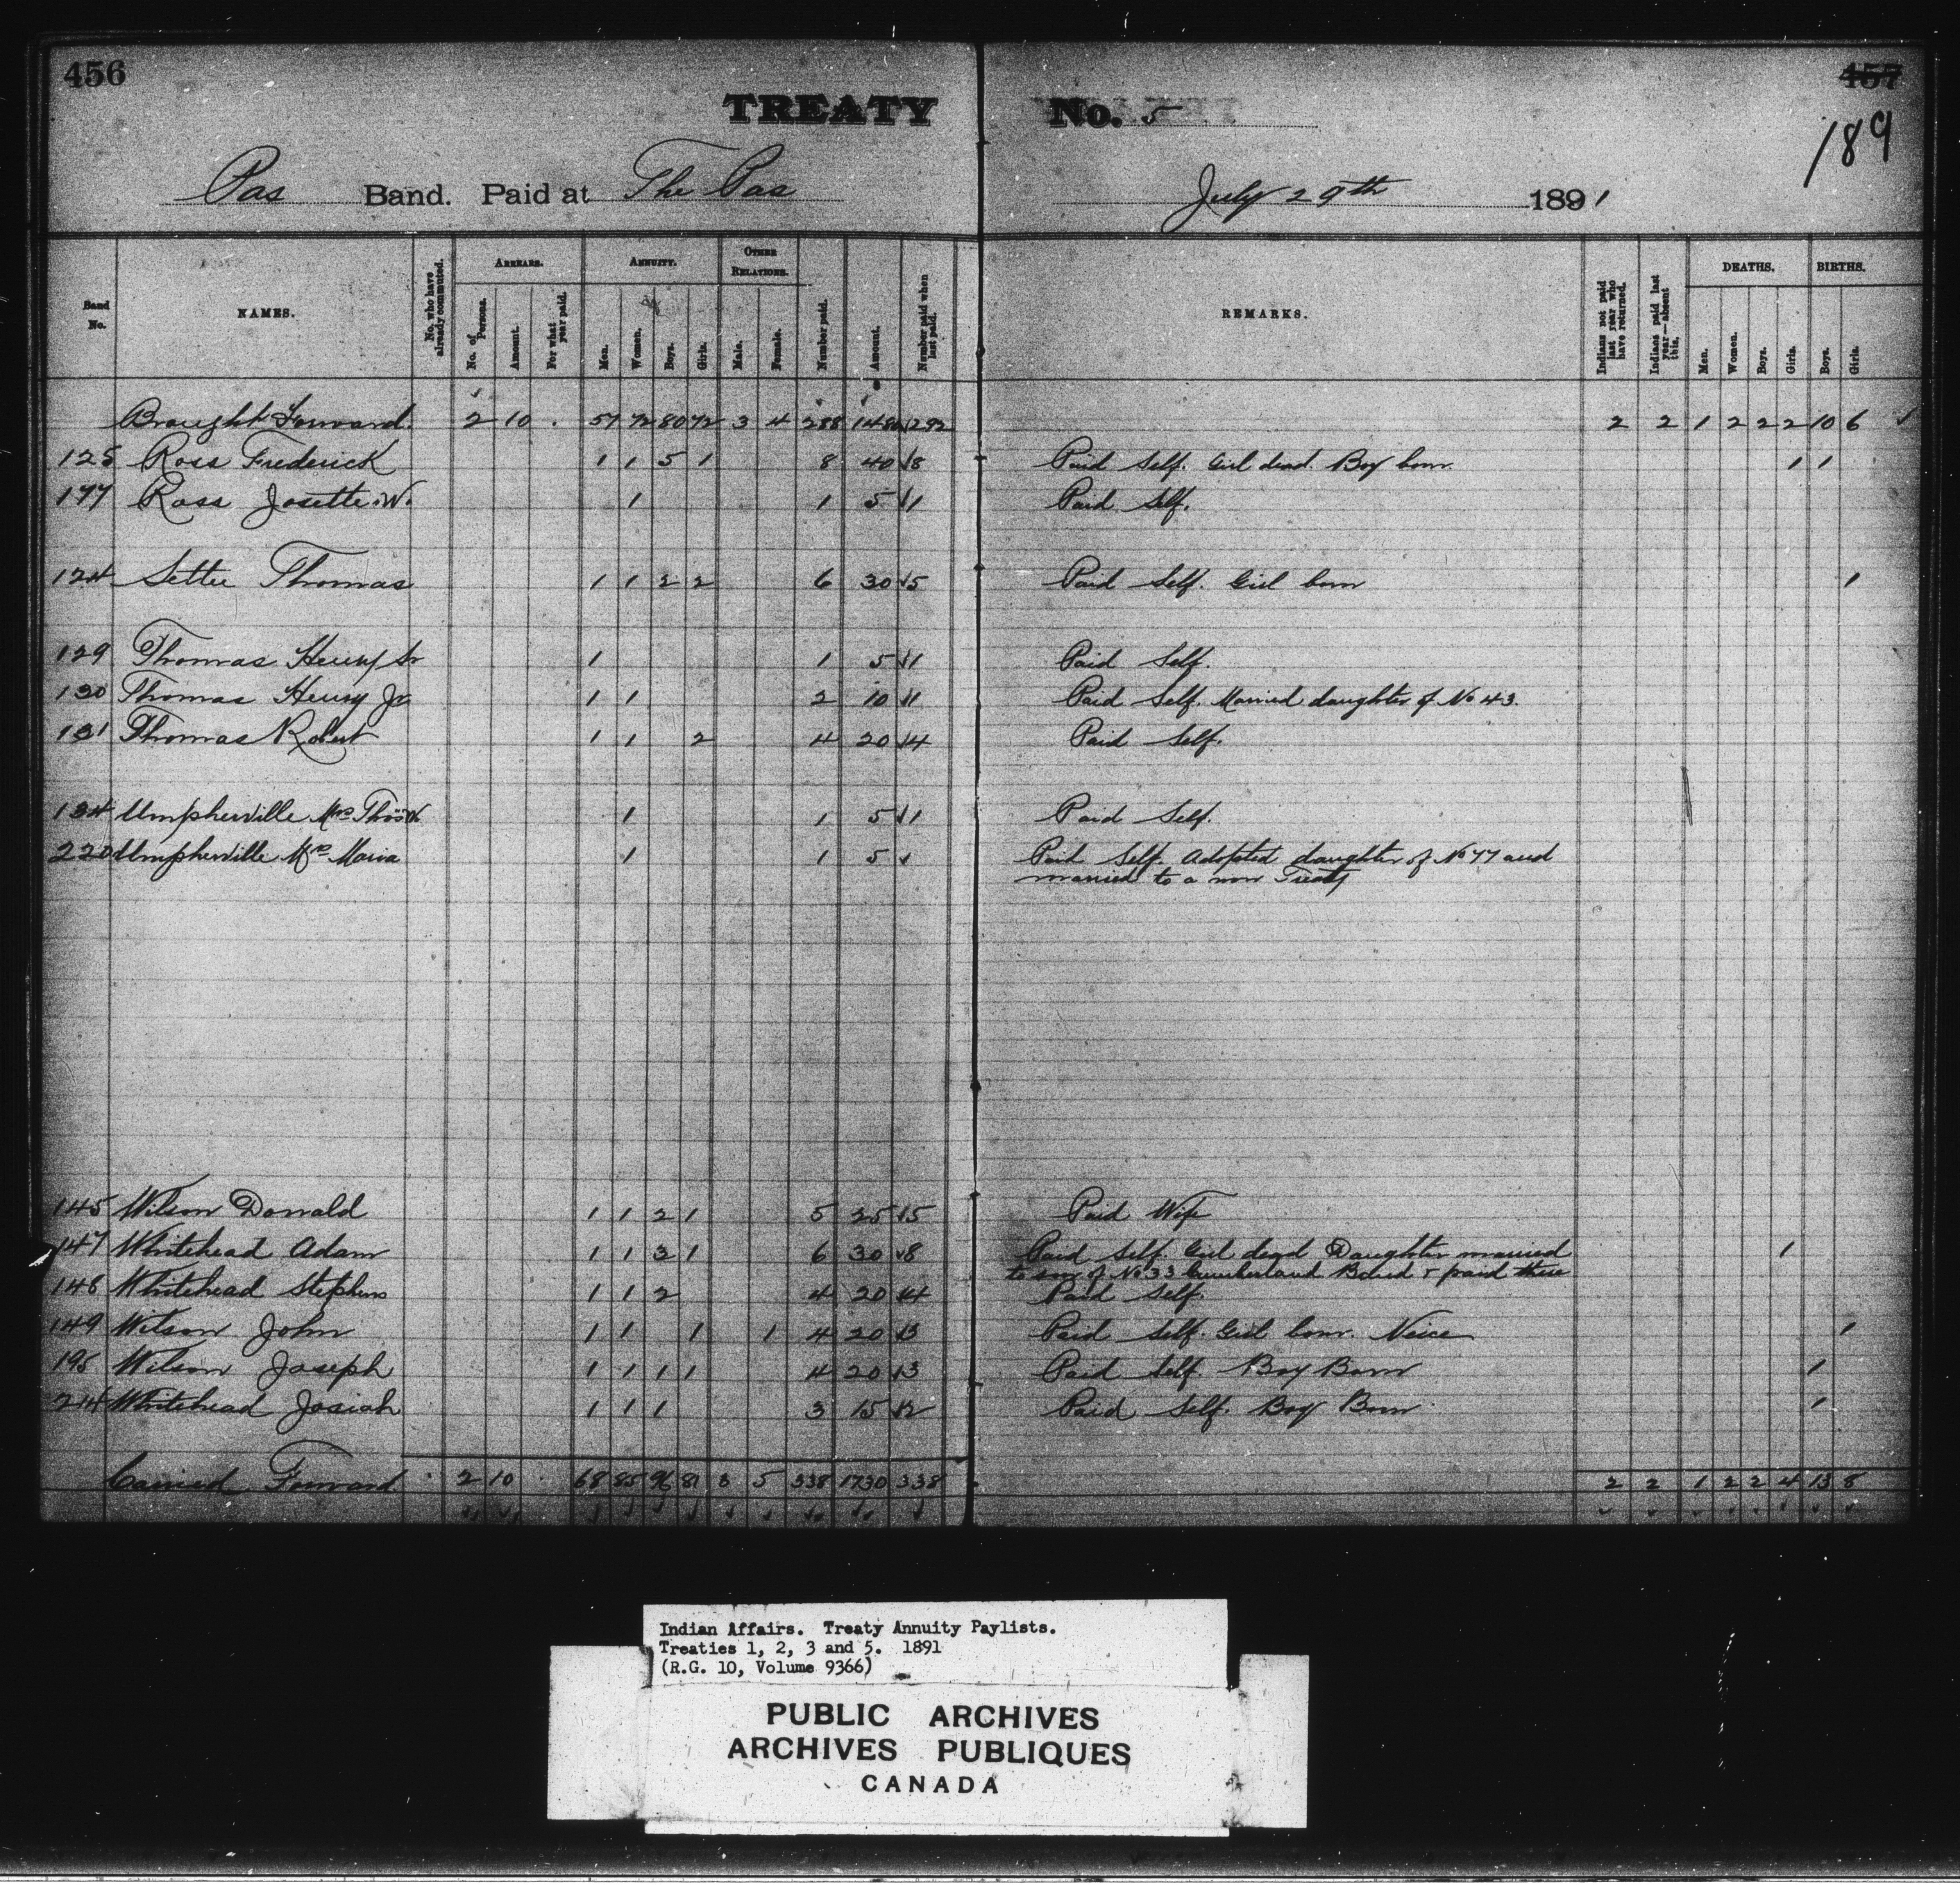 456
457
189
TREATY No. 5
Pas Band. Paid at The Pas July 29th 1891
Band No. NAMES. No. who have already commuted. ARREARS. No. of Persons. Amount. For what year paid. ANNUITY. Men. Women. Boys. Girls. OTHER RELATIONS. Male. Female. Number paid. Amount. Number paid when last paid. REMARKS. Indians not paid last year who have returned. Indians paid last year—absent this. DEATHS. Men. Women. Boys. Girls. BIRTHS. Boys. Girls.
Brought Forward. 2 10 57 72 80 72 3 4 288 1480 292 2 2 1 2 2 2 10 6
125 Ross Frederick 1 1 5 1 8 40 8 Paid Self. Girl dead. Boy born. 1 1
177 Ross Josette W. 1 1 5 1 Paid Self.
124 Settee Thomas 1 1 2 2 6 30 5 Paid Self. Girl born 1
129 Thomas Henry Sr 1 1 5 1 Paid Self.
130 Thomas Henry Jr 1 1 2 10 1 Paid Self. Married daughter of No 43.
131 Thomas Robert 1 1 2 4 20 4 Paid Self.
134 Umpherville Mrs Thos W. 1 1 5 1 Paid Self.
220 Umpherville Mrs Maria 1 1 5 Paid Self. Adopted daughter of No 77 and
married to a non Treaty
145 Wilson Donald 1 1 2 1 5 25 5 Paid Wife
147 Whitehead Adam 1 1 3 1 6 30 8 Paid Self. Girl dead Daughter married 1
to son of No 33 Cumberland Band & paid there
148 Whitehead Stephens 1 1 2 4 20 4 Paid Self.
149 Wilson John 1 1 1 1 4 20 3 Paid Self. Girl born. Neice 1
195 Wilson Joseph 1 1 1 1 4 20 3 Paid Self. Boy Born 1
214 Whitehead Josiah 1 1 1 3 15 2 Paid Self. Boy Born 1
Carried Forward 2 10 68 85 96 81 3 5 338 1730 338 2 2 1 2 2 4 13 8
Indian Affairs. Treaty Annuity Paylists.
Treaties 1, 2, 3 and 5. 1891
(R.G. 10, Volume 9366)
PUBLIC ARCHIVES
ARCHIVES PUBLIQUES
CANADA